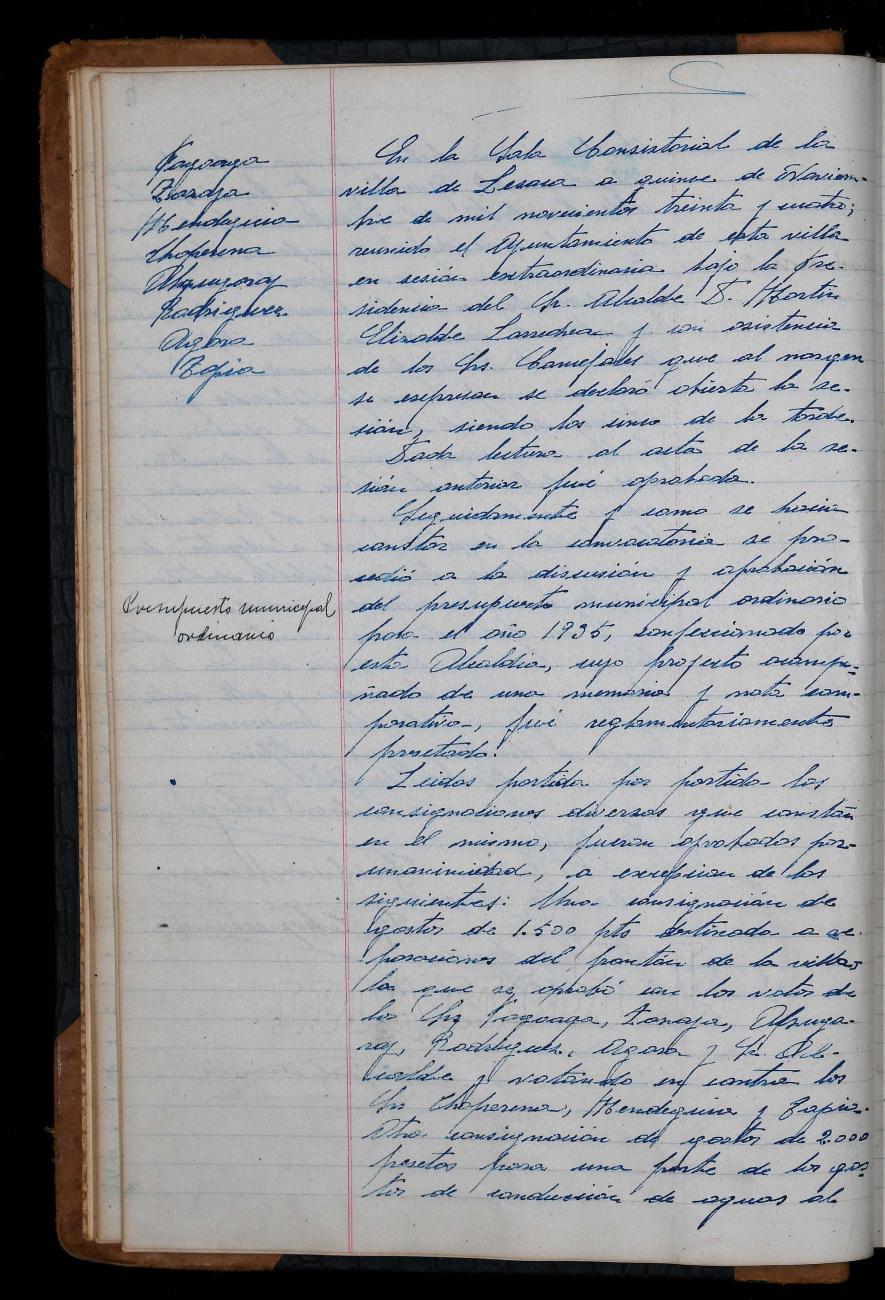 Fagoaga
Zaraza
Mendeguia
Choperena
Alzugaray
Rodriguez
Agara
Tapia
En la Sala Consistorial de la
villa de Lesaca a quince de Noviem-
bre de mil novecientos treinta y cuatro;
reunido el Ayuntamiento de esta villa
en sesión extraordinaria bajo la Pre-
sidencia del Sr. Alcalde D. Martin
Elizalde Larrechea y con asistencia
de los Srs. Concejales que al margen
se expresan se declaró abierta la se-
sión, siendo las cinco de la tarde.
Dada lectura al acta de la se-
sión anterior fué aprobada.
Seguidamente y como se hacia
constar en la convocatoria se pro-
cedió a la discusión y aprobación
Presupuesto municipal
ordinario
del presupuesto municipal ordinario
para el año 1935, confeccionado por
esta Alcaldia, cuyo proyecto acompa-
ñado de una memoria y nota com-
parativa, fué reglamentariamente
Leidas partida por partida las
consignaciones diversas que constan
en el mismo, fueron aprobadas por
unanimidad, a excepcion de las
siguientes: Una consignación de
gastos de 1.500 pts destinada a re-
paraciones del frontón de la villa,
la que se aprobó con los votos de
los Srs Fagoaga, Zaraza, Alzuga-
ray, Rodriguez, Agara y Sr. Al-
calde y votando en contra los
Srs Choperena, Mendeguia y Tapia.
Otra consignación de gastos de 2.000
pesetas para una parte de los gas-
tos de conducción de aguas al